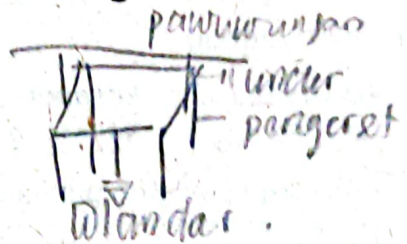 pawuwungan
uncur
pangeret
Wlandar.